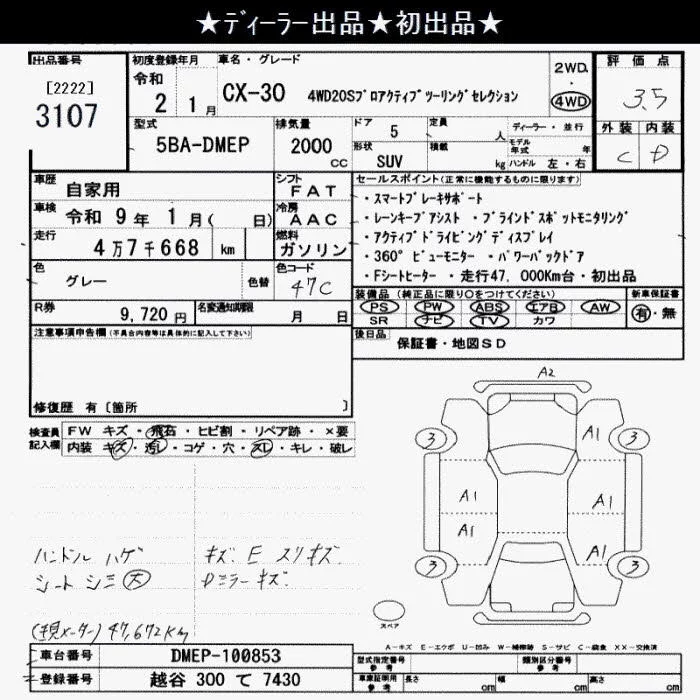 ★ディーラー出品★初出品★
出品番号
[2222]
3107
初度登録年月
令和
2 1月
車名・グレード
CX-30 4WD20Sプロアクティブツーリングセレクション
2WD.
4WD
評価点
3.5
外装 内装
C D
型式
5BA-DMEP
排気量
2000
cc
ドア
5
形状
SUV
定員
人
積載
kg
ディーラー・並行
モデル年式 年
ハンドル 左・右
車歴
自家用
車検
令和 9年 1月( 日)
走行
4万7千668 km
色
グレー
色替
シフト
FAT
冷房
AAC
燃料
ガソリン
色コード
47C
R券
9,720円
名変通知期限
月 日
セールスポイント(正常に機能するものに限ります)
・スマートブレーキサポート
・レーンキープアシスト ・ブラインドスポットモニタリング
・アクティブドライビングディスプレイ
・360°ビューモニター ・パワーバックドア
・Fシートヒーター ・走行47,000Km台・初出品
装備品 (純正品に限り○をつけてください)
PS PW ABS エアB AW
SR ナビ TV カワ
新車保証書
有・無
後日品
保証書・地図SD
注意事項申告欄(不具合内容等は具体的に記入して下さい)
修復歴 有 [箇所 ]
検査員
記入欄
FW キズ・飛石・ヒビ割・リペア跡・×要
内装 キズ・汚レ・コゲ・穴・スレ・キレ・破レ
ハンドル ハゲ
シート シミ大
キズ. E スリキズ.
Dミラーキズ.
(現メーター) 47,672Km
A2
3 A1 3
A1 A1
A1 A1
3 3
スペア
A-キズ E-エクボ U-凹み W-補修跡 S-サビ C-腐食 XX-交換済
車台番号
DMEP-100853
登録番号
越谷 300 て 7430
型式指定番号
参考
類別区分番号
参考
車庫証明用
参考
長さ cm 幅 cm 高さ cm